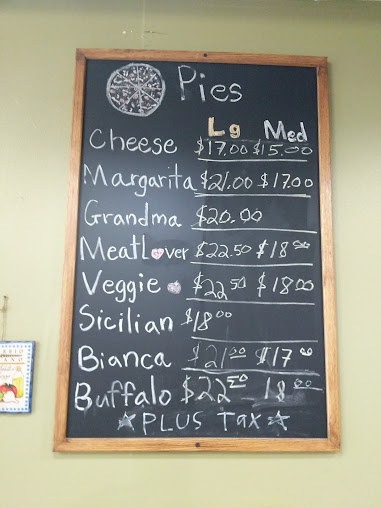 Pies
Lg Med
Cheese $17.00 $15.00
Margarita $21.00 $17.00
Grandma $20.00
Meatlover $22.50 $18.00
Veggie $22.50 $18.00
Sicilian $18.00
Bianca $21.00 $17.00
Buffalo $22.50 18.00
PLUS Tax